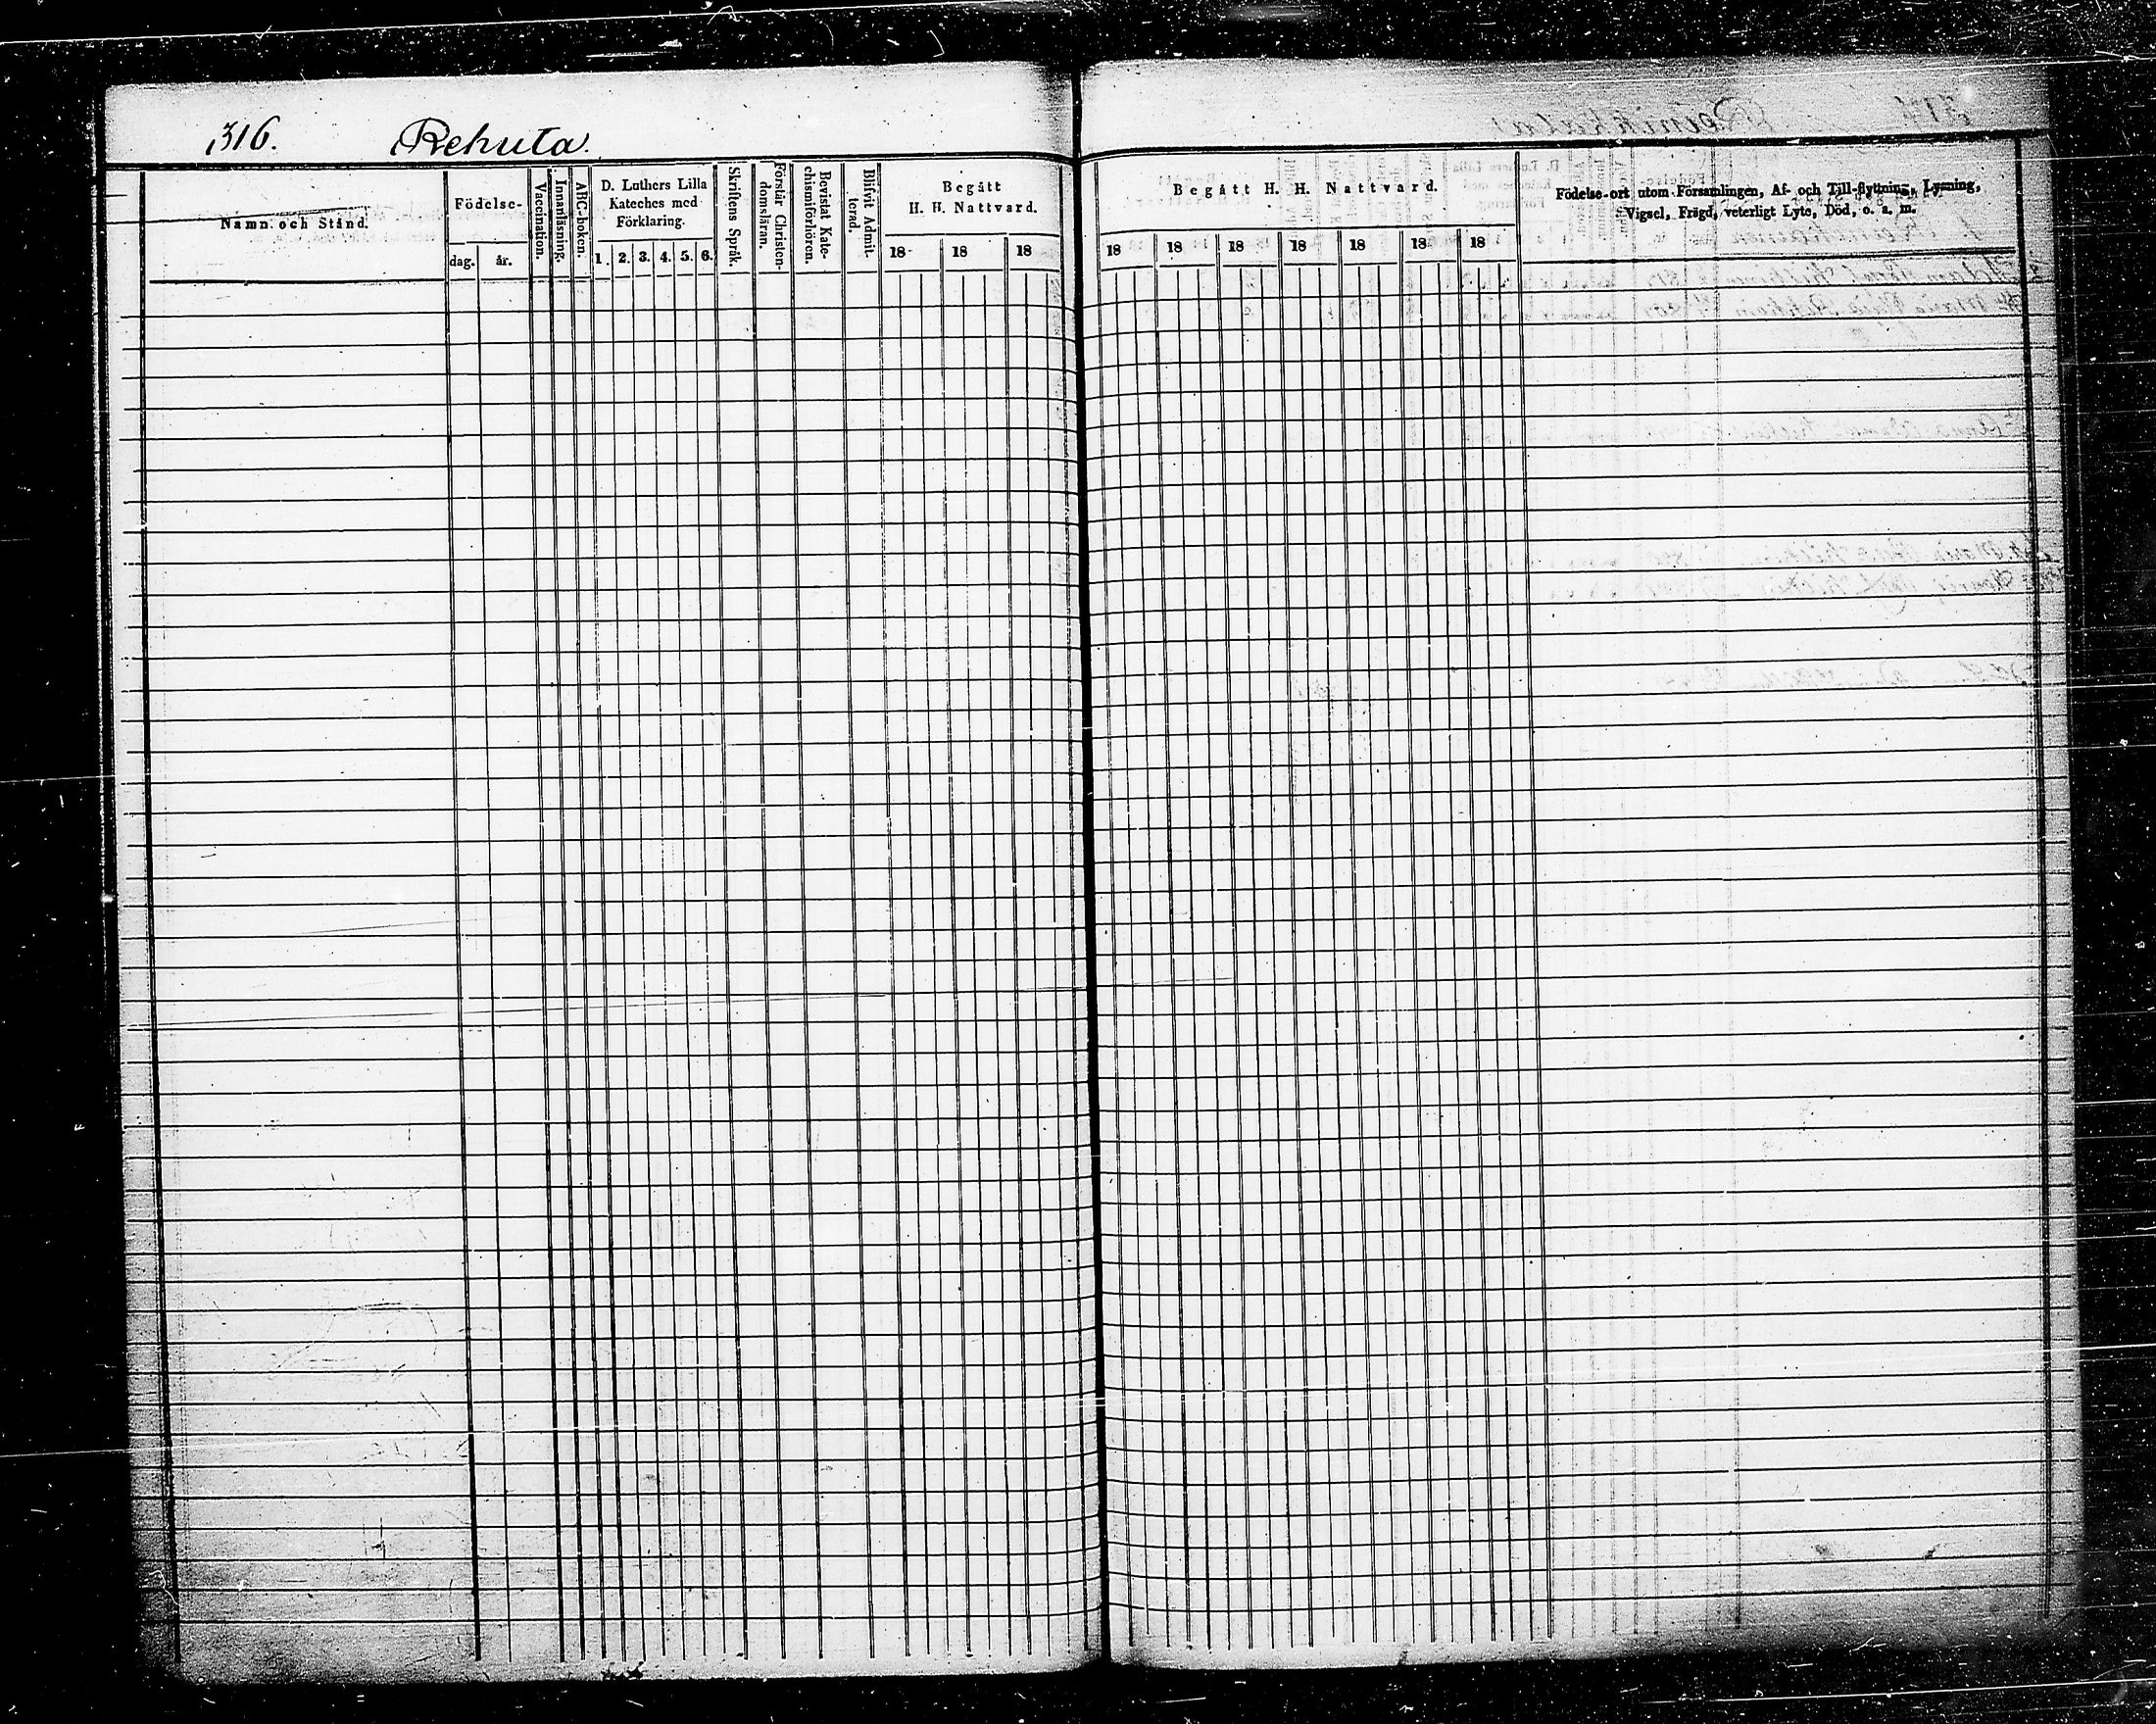 316. Rekuta.
Namn och Stånd.
Födelse-
dag. år.
Vaccination.
Innanläsning.
ABC-boken.
D. Luthers Lilla
Kateches med
Förklaring.
1. 2. 3. 4. 5. 6.
Skriftens Språk.
Förstår Christen-
domsläran.
Bevistat Kate-
chismiförhören.
Blifvit Admit-
terad.
Begått
H. H. Nattvard.
18 18 18
Begått H. H. Nattvard.
18 18 18 18 18 18 18
Födelse-ort utom Församlingen, Af- och Till-flyttning, Lysning,
Vigsel, Frägd, veterligt Lyte, Död, o. s. m.